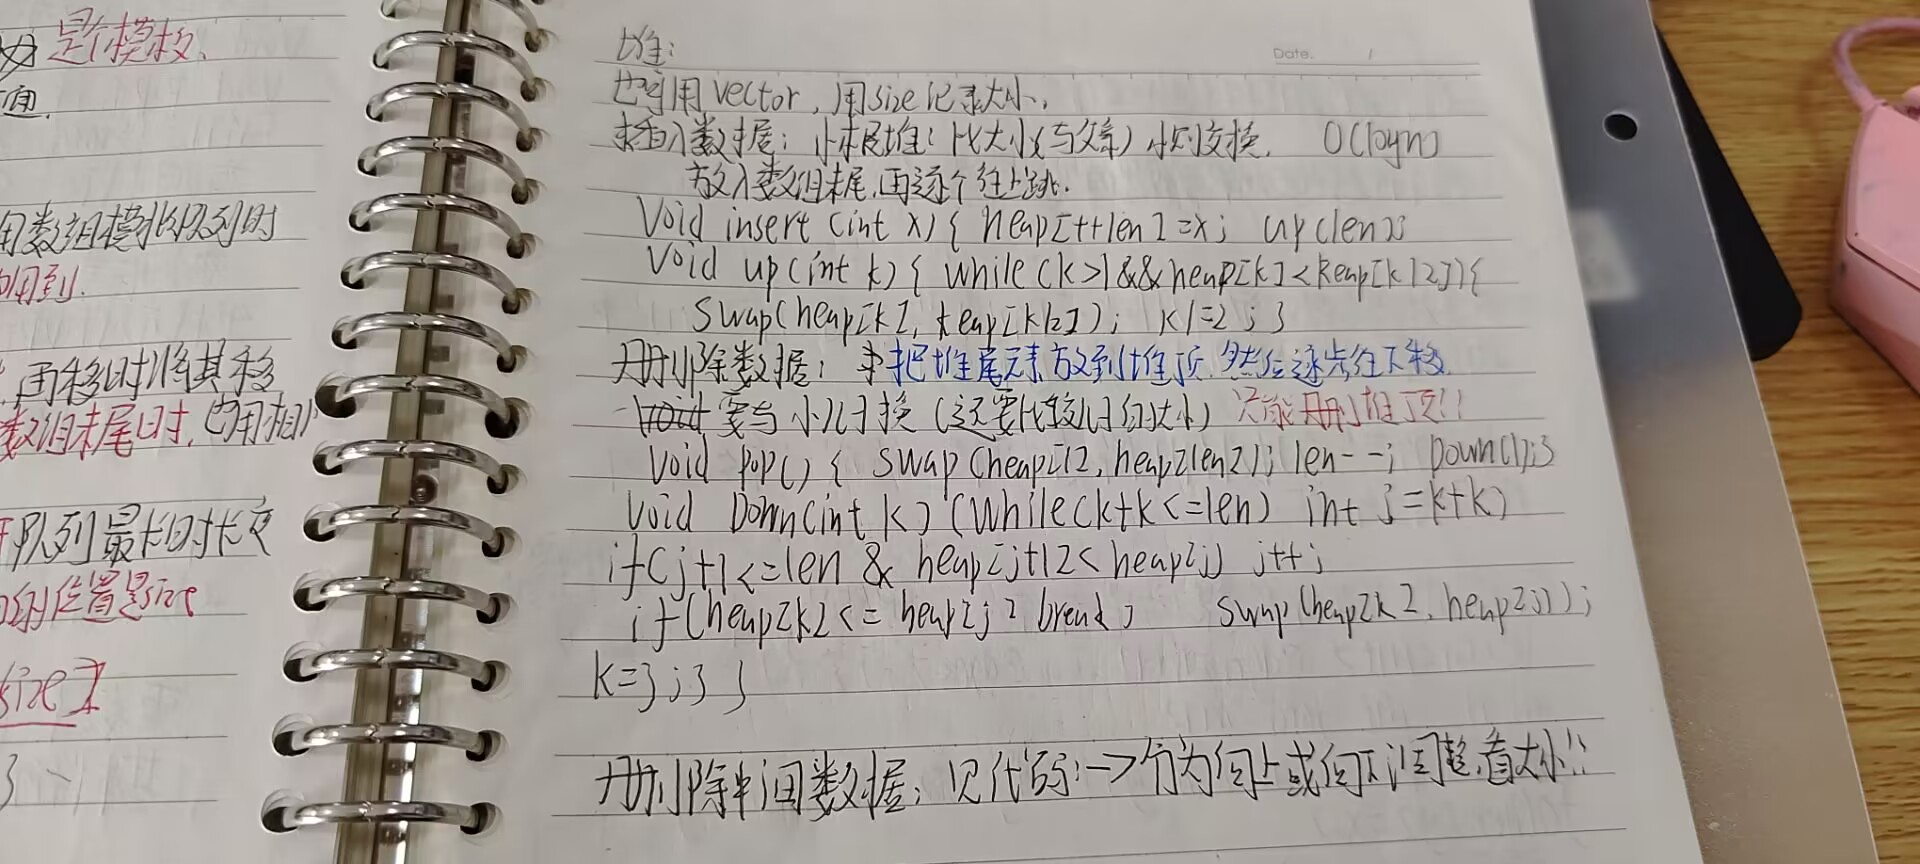 是个模板.
用数组模拟队列时
用到.
再移时将其移
数组末尾时,也用相
队列最长时长度
的位置是size
size]
堆:
Date. /
也可用vector,用size记录大小,
插入数据:小根堆:比大小(与父亲)小则交换. O(logn)
放入数组末尾,再逐个往上跳.
Void insert (int x) { heap[++len]=x; up(len);
Void up(int k) { while (k>1&&heap[k]<heap[k/2]){
Swap(heap[k], heap[k/2]); k/=2; }
删除数据:把堆尾元素放到堆顶,然后逐步往下移.
要与小儿子换(还要比较儿子的大小)只能删堆顶!!
Void pop() { swap(heap[1], heap[len]); len--; Down(1);}
Void Down(int k) {while(k+k<=len) int j=k+k)
if(j+1<=len & heap[j+1]<heap[j) j++;
if(heap[k]<= heap[j] break; swap(heap[k], heap[j]);
k=j;} }
删除中间数据:见代码:->分为向上或向下调整,看大小!!